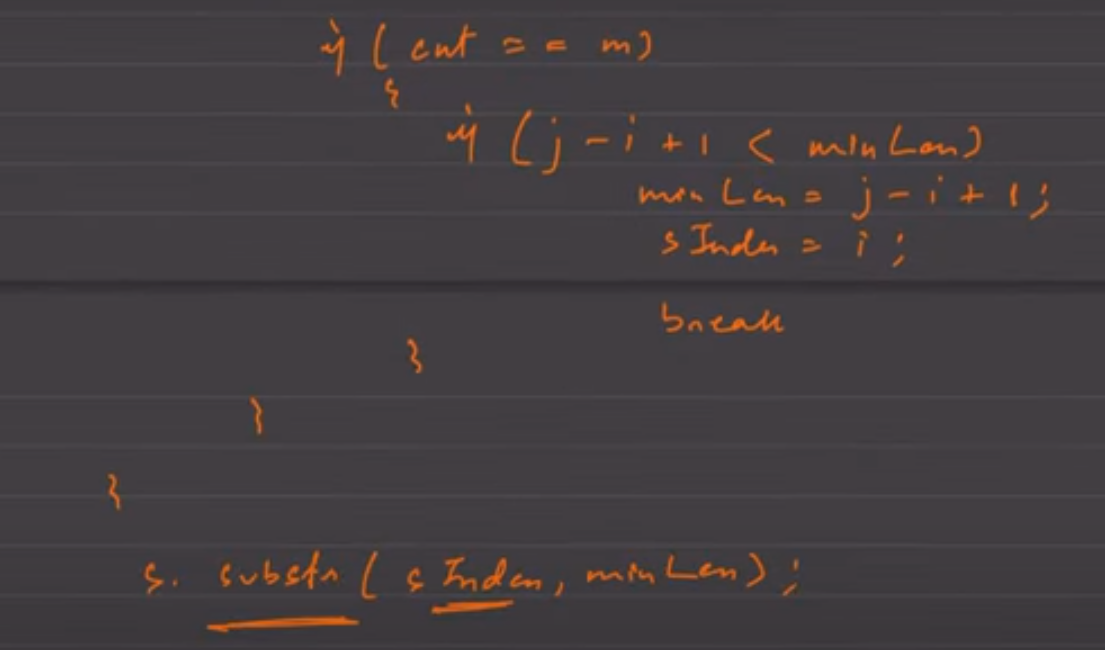 if (cnt == m)
{
if (j - i + 1 < minLen)
minLen = j - i + 1;
sIndex = i;
break
}
}
}
s. substr(sIndex, minLen);